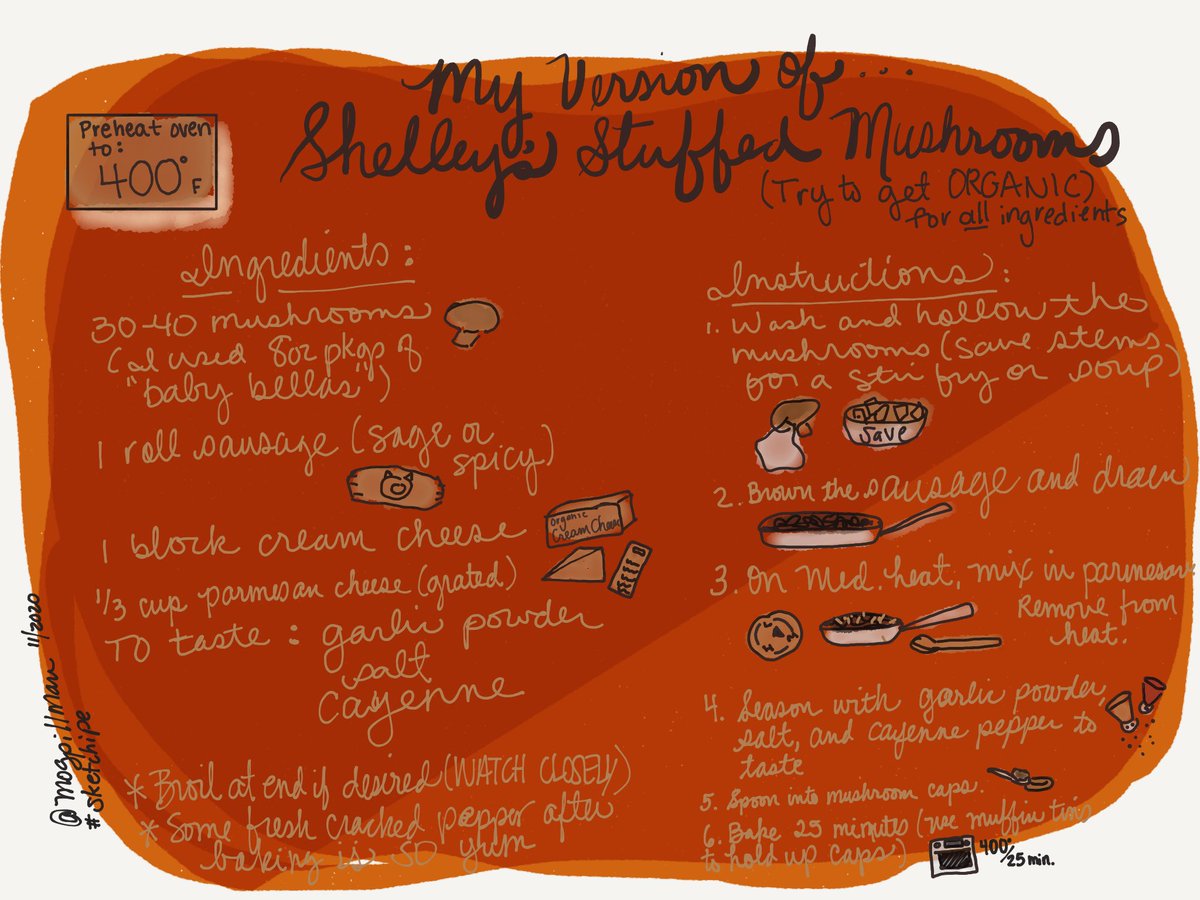 My Version of...
Shelley's Stuffed Mushrooms
(Try to get ORGANIC)
for all ingredients
Preheat oven
to:
400° F
Ingredients:
30-40 mushrooms
(I used 8oz pkgs of
"baby bellas")
1 roll sausage (sage or
spicy)
1 block cream cheese
Organic
Cream Cheese
1/3 cup parmesan cheese (grated)
TO taste: garlic powder
salt
cayenne
* Broil at end if desired (WATCH CLOSELY)
* Some fresh cracked pepper after
baking is SO yum
Instructions:
1. Wash and hollow the
mushrooms (save stems
for a stir fry or soup)
Save
2. Brown the sausage and drain
3. On Med. heat, mix in parmesan.
Remove from
heat.
4. Season with garlic powder,
salt, and cayenne pepper to
taste
5. Spoon into mushroom caps.
6. Bake 25 minutes (use muffin tins
to hold up caps)
400°/25 min.
@mogpillman 11/2020
#sketchipe